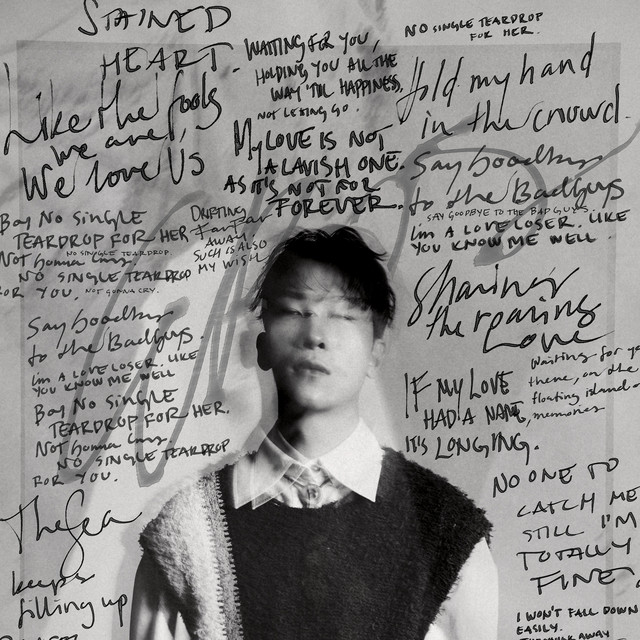 STAINED
HEART.
Like the fools
we are,
We love Us
WAITING FOR YOU,
HOLDING YOU ALL THE
WAY 'TIL HAPPINESS,
NOT LETTING GO.
My LOVE IS NOT
A LAVISH ONE.
AS IT'S NOT FOR
FOREVER.
NO SINGLE TEARDROP
FOR HER.
Hold my hand
in the crowd.
Say Goodbye
to the BadGuys
SAY GOODBYE TO THE BAD GUYS.
I'm A LOVE LOSER. LIKE
YOU KNOW ME WELL.
Boy No SiNGLE
TEARDROP FOR HER
NO SINGLE TEARDROP
Not Gonna Cry
NO SINGLE TEARDROP
FOR YOU. NOT GONNA CRY.
DRIFTING
Far Far
AWAY
SUCH IS ALSO
MY WISH
Say Goodbye
to the BadGuys.
I'm A LOVE LOSER. LIKE
YOU KNOW ME WELL
Boy No SiNGLE
TEARDROP FOR HER.
Not Gonna Cry
NO SINGLE TEARDROP
FOR YOU.
the roaring
Love
IF MY LOVE
HAD A NAME,
IT'S LONGING.
Waiting for
there, on the
floating island
memories
NO ONE TO
CATCH ME
STILL I'M
TOTALLY
FINE.
The Sea
keeps
filling up
I WON'T FALL DOWN
EASILY.
AWAY